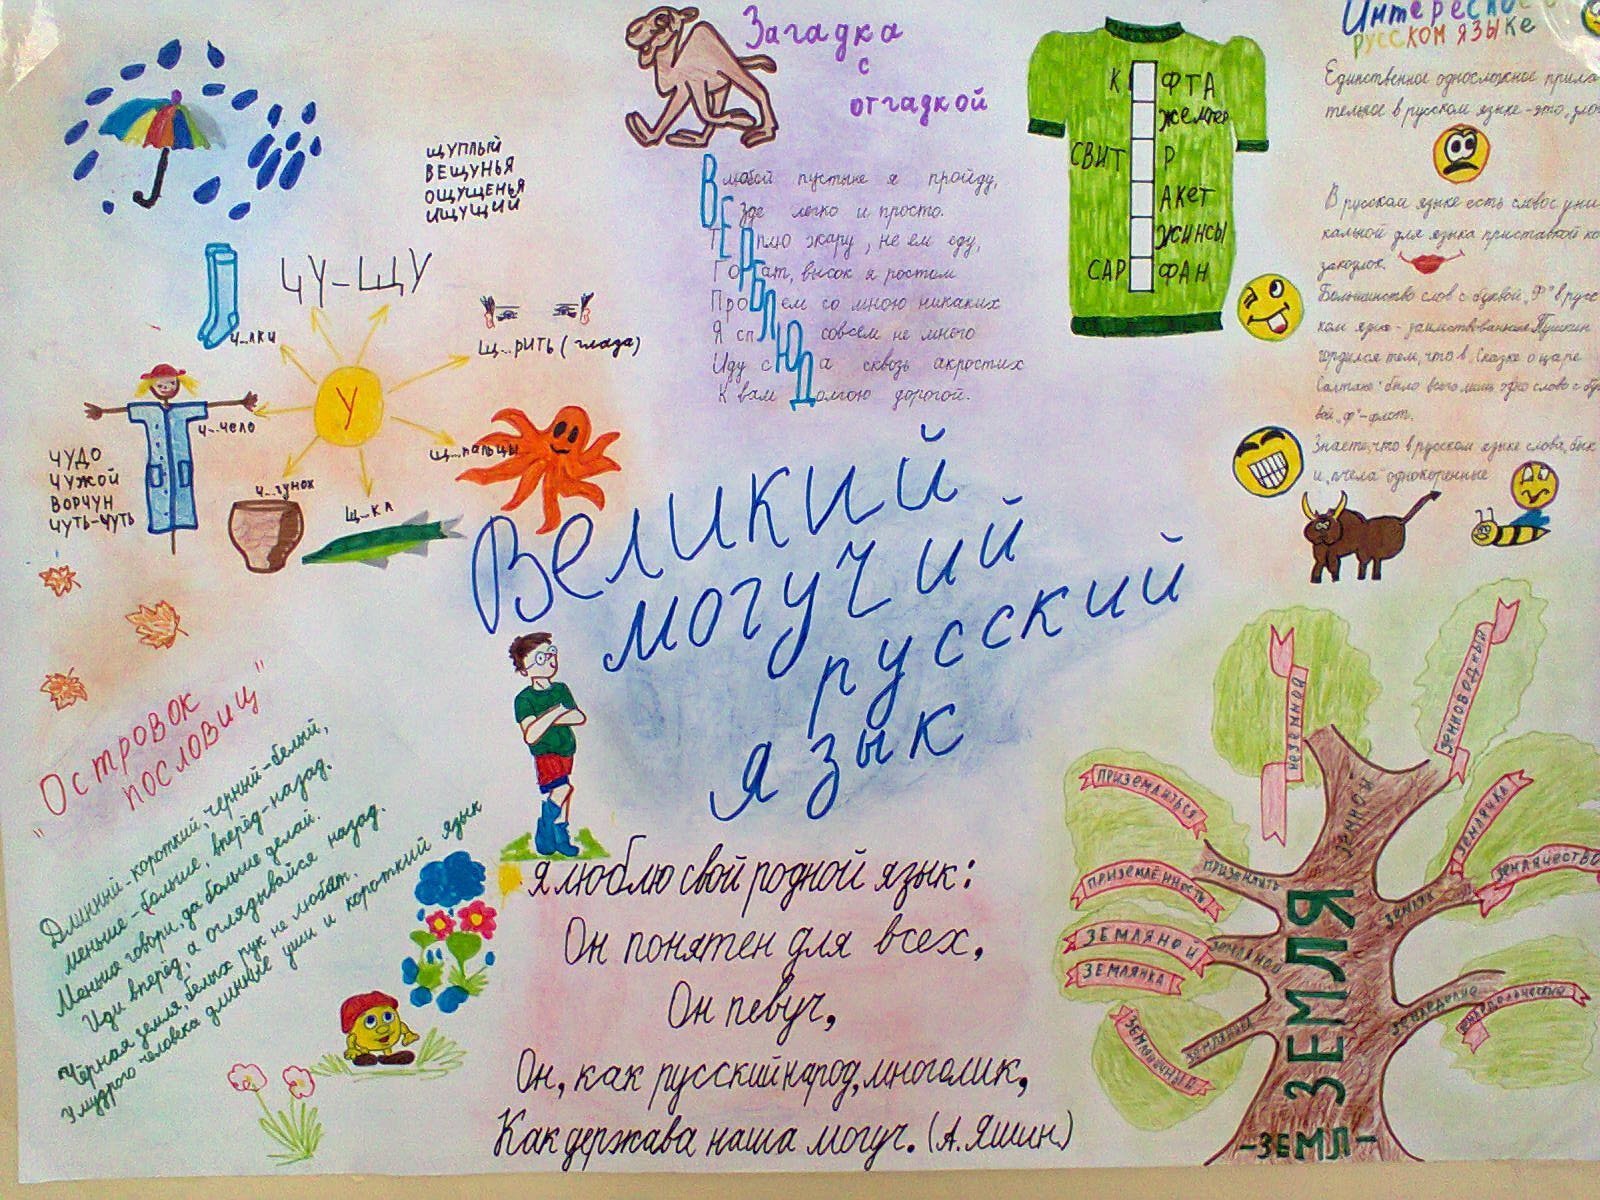 Загадка
с
отгадкой
В любой пустыне я пройду,
Везде легко и просто.
Терплю жару, не ем еду,
Горбат, высок я ростом
Проблем со мною никаких
Я сплю совсем не много
Иду сюда сквозь акростих
К вам долгою дорогой.
К ФТА
ЖЕМПЕР
СВИТ Р
АКЕТ
ЖИНСЫ
САР ФАН
Интересное о
русском языке
Единственное односложное прила-
тельное в русском языке - это „зло
В русском языке есть слово с уни-
кальной для языка приставкой ко-
закоулок.
Большинство слов с буквой „Ф" в русс
ком языке - заимствованные Пушкин
гордился тем, что в „Сказке о царе
Салтане" было всего лишь одно слово с бук
вой „ф"-флот.
Знаете, что в русском языке слова „бык
и „пчела" однокоренные
ЩУПЛЫЙ
ВЕЩУНЬЯ
ОЩУЩЕНЬЯ
ИЩУЩИЙ
ЧУ-ЩУ
Ч...ЛКИ
Щ...РИТЬ (глаза)
У
Ч...ЧЕЛО
Щ...ПАЛЬЦЫ
Ч...ГУНОК
Щ...КА
ЧУДО
ЧУЖОЙ
ВОРЧУН
ЧУТЬ-ЧУТЬ
Великий
могучий
русский
язык
"Островок
пословиц"
Длинный-короткий, чёрный-белый,
меньше-больше, вперёд-назад.
Меньше говори, да больше делай.
Иди вперёд, а оглядывайся назад.
Чёрная земля, белых рук не любят.
У мудрого человека длинные уши и короткий язык
Я люблю свой родной язык:
Он понятен для всех,
Он певуч,
Он, как русский народ, многолик,
Как держава наша могуч. (А. Яшин)
НЕЗЕМНОЙ
ЗЕМНОВОДНЫЙ
ЗЕМНОЙ
ПРИЗЕМЛИТЬСЯ
ПРИЗЕМЛИТЬ
ПРИЗЕМЛЁННОСТЬ
ЗЕМЛЯЧКА
ЗЕМЛЯЧЕСТВО
ЗЕМЛЯК
ЗЕМЛЯНОЙ
ЗЕМЛЯНОЙ
ЗЕМЛЯНКА
ЗЕМЛЕДЕЛИЕ
ЗЕМЛЕДЕЛЬЧЕСКИЙ
ЗЕМЛЯНИЧНЫЙ
ЗЕМЛЯ
-ЗЕМЛ-